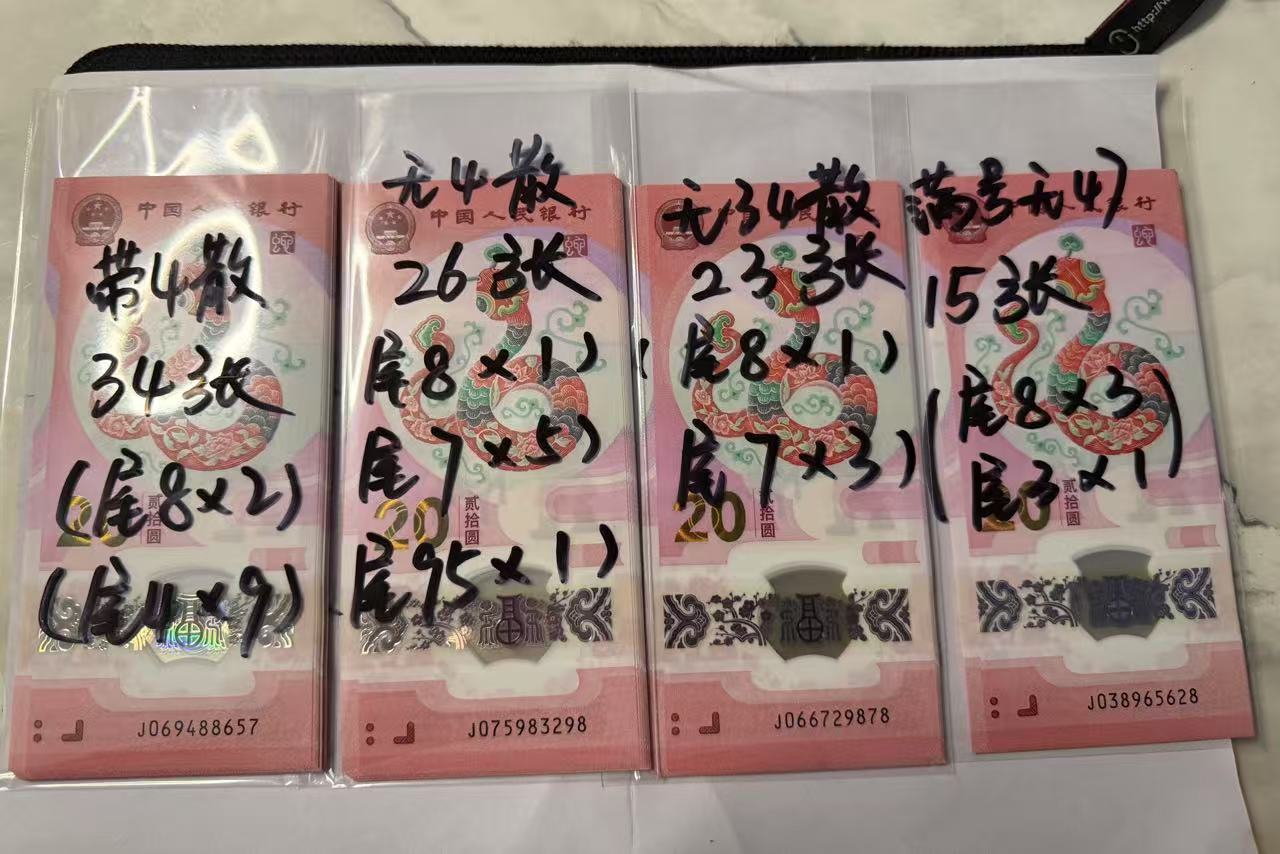 http://v
中国人民银行
带4散
34张
(尾8×2)
(尾4×9)
20
贰拾圆
J069488657
无4散
中国人民银行
26张
尾8×1)
尾7×5)
尾95×1)
20
贰拾圆
J075983298
无34散
23张
(尾8×1)
尾7×3)
20
贰拾圆
J066729878
满号无47
15张
(尾8×3
尾3×1)
20
贰拾圆
J038965628